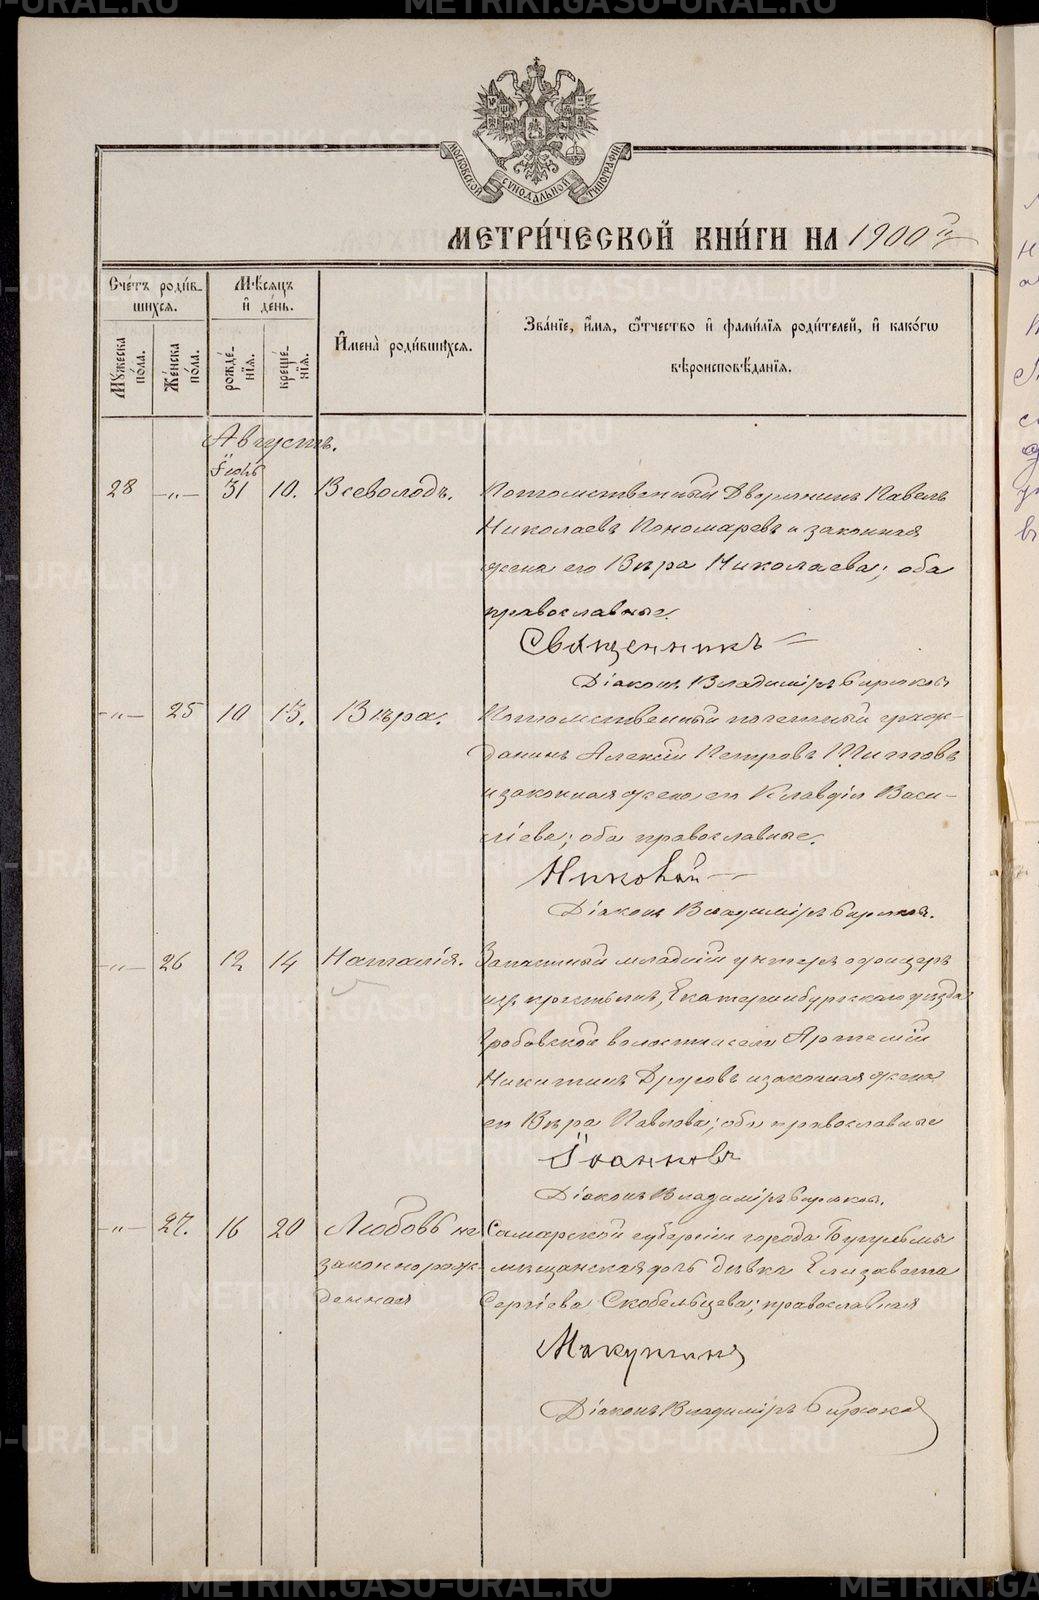 METRIKI.GASO-URAL.RU
МОСКОВСКОЙ СѴНОДАЛЬНОЙ ТИПОГРАФИИ
МЕТРИ́ЧЕСКОЙ КНИ́ГИ НА 1900 й
Сче́тъ роди́в-
шихсѧ.
Мѣ́сѧцъ
и҆ де́нь.
И҆мена̀ роди́вшихсѧ.
Зва́нїе, и҆́мѧ, ѻ҆́тчество и҆ фами́лїѧ роди́телей, и҆ како́гѡ
вѣроисповѣ́данїѧ.
Мꙋ́жеска
по́ла.
Же́нска
по́ла.
рожде́-
нїѧ.
креще́-
нїѧ.
Августъ.
Іюль
28 —„— 31 10. Всеволодъ. Потомственный Дворянинъ Павелъ
Николаевъ Пономаревъ и законная
жена его Вѣра Николаева; оба
православные.
Священникъ
Діаконъ Владиміръ Бирюковъ
—„— 25 10 13. Вѣра. Потомственный почетный граж-
данинъ Алексій Петровъ Титовъ
и законная жена его Клавдія Васи-
ліева; оба православные.
Николай
Діаконъ Владиміръ Бирюковъ.
—„— 26 12 14 Наталія. Запасный младшій унтеръ офицеръ
изъ крестьянъ, Екатеринбургскаго уѣзда
Гробовской волости и села Артемій
Никитинъ Друговъ и законная жена
его Вѣра Павлова; оба православные
Іоанновъ
Діаконъ Владиміръ Бирюковъ.
—„— 27. 16 20 Любовь не Самарской губерніи города Бугульмы
законнорож- мѣщанская дочь дѣвка Елизавета
денная Сергіева Скобельцева; православная
Макушинъ
Діаконъ Владиміръ Бирюковъ